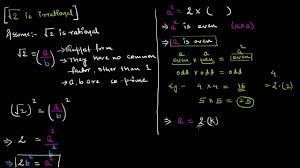 √2 is irrational
Assume:- √2 is rational
√2 = a/b → Simplest form
→ They have no common factor, other than 1
→ a, b are co-prime
(√2)² = (a/b)²
⇒ 2 = a²/b²
⇒ 2b² = a²
a² = 2 × ( )
⇒ a² is even (a × a)
⇒ a is even
even × even = even
odd × odd = odd
eg:- 4 × 4 = 16
4 = 2·(2)
5 × 5 = 25
⇒ a = 2·(k)